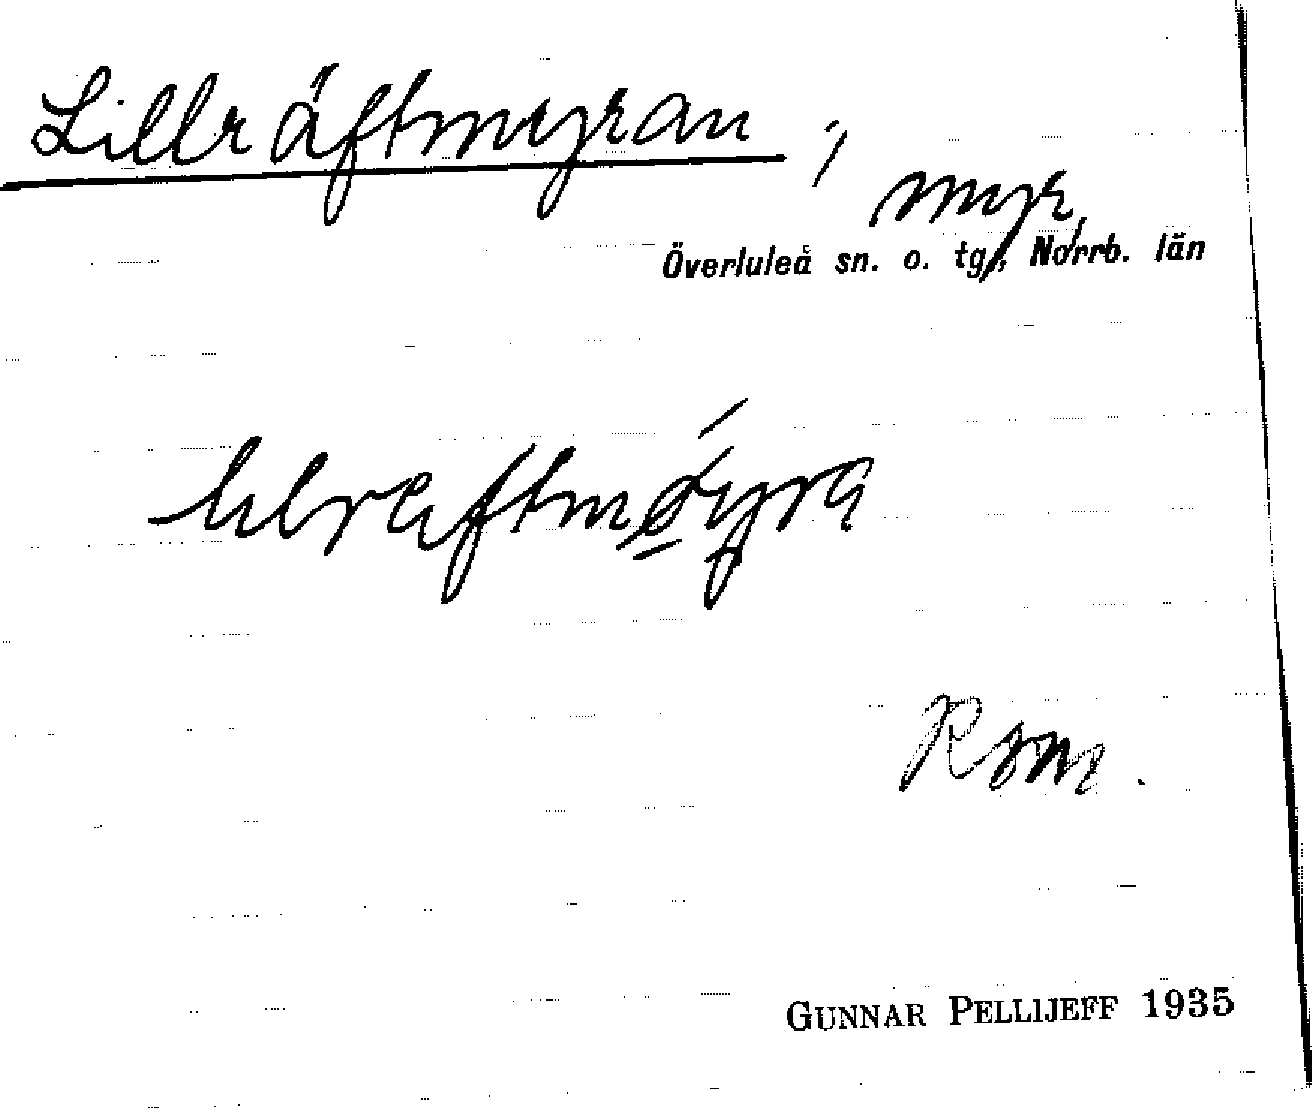 Lillräftmyran,
myr,
Överluleå sn. o. tg, Norrb. län
Rom.
GUNNAR PELLIJEFF 1935